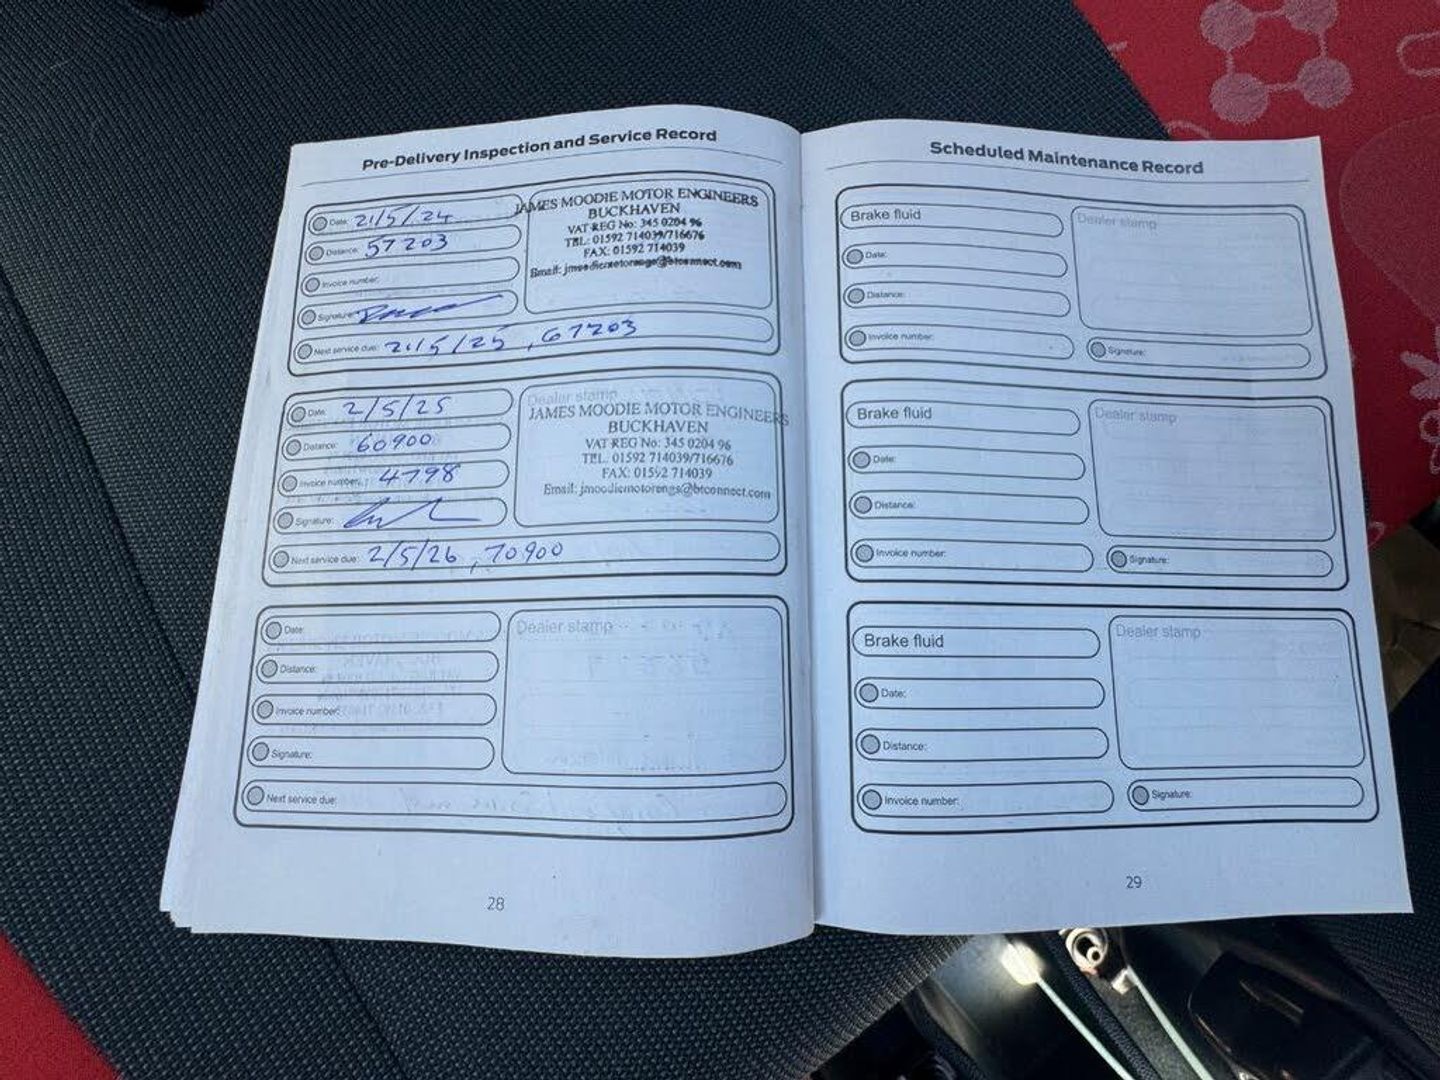 Pre-Delivery Inspection and Service Record
Date: 21/5/24
Distance: 57203
Invoice number:
Signature:
Next service due: 21/5/25, 67203
JAMES MOODIE MOTOR ENGINEERS
BUCKHAVEN
VAT REG No: 345 0204 96
TEL: 01592 714039/716676
FAX: 01592 714039
Email: jmoodiemotorengs@btconnect.com
Date: 2/5/25
Distance: 60900
Invoice number: 4798
Signature:
Next service due: 2/5/26, 70900
Dealer stamp
JAMES MOODIE MOTOR ENGINEERS
BUCKHAVEN
VAT REG No: 345 0204 96
TEL. 01592 714039/716676
FAX: 01592 714039
Email: jmoodiemotorengs@btconnect.com
Date:
Distance:
Invoice number:
Signature:
Next service due:
Dealer stamp
28
Scheduled Maintenance Record
Brake fluid
Date:
Distance:
Invoice number:
Dealer stamp
Signature:
Brake fluid
Date:
Distance:
Invoice number:
Dealer stamp
Signature:
Brake fluid
Date:
Distance:
Invoice number:
Dealer stamp
Signature:
29